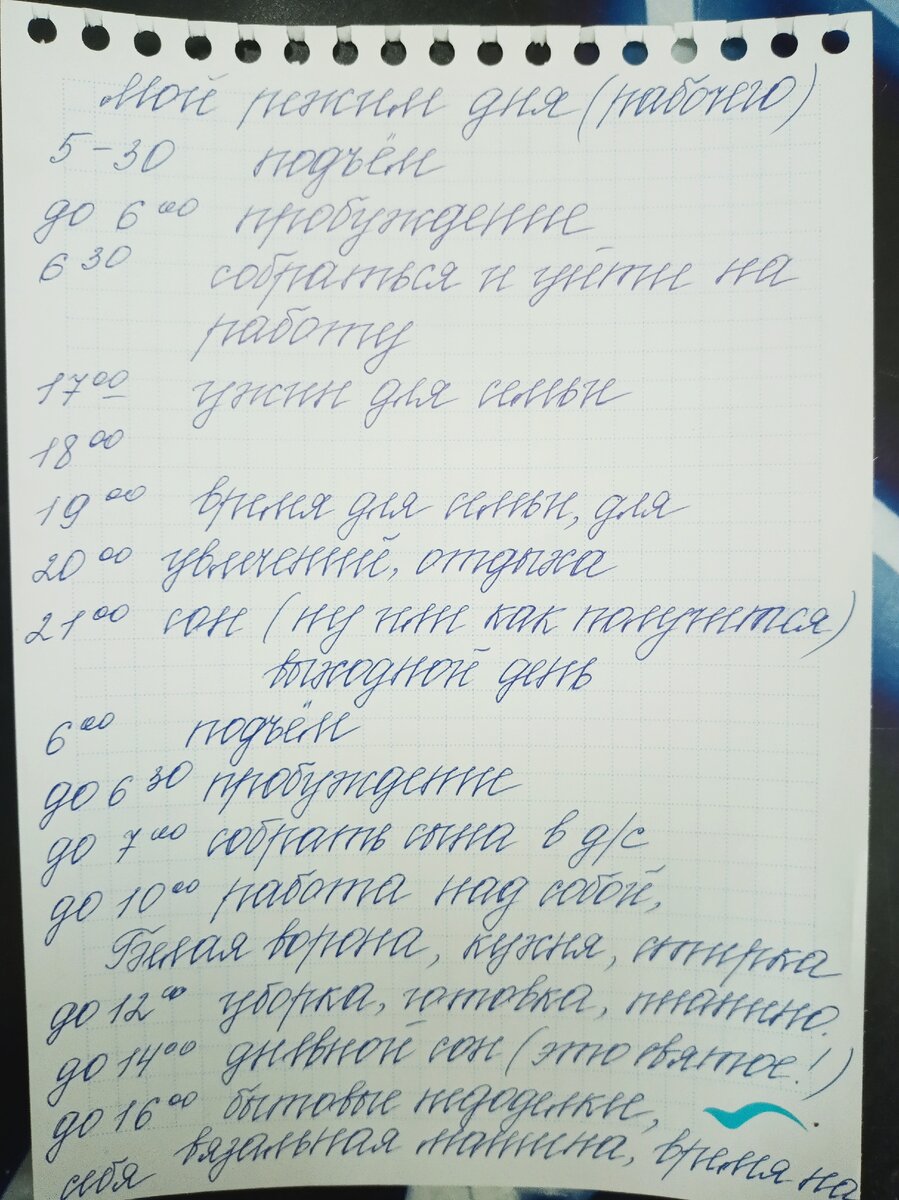 Мой режим дня (рабочего)
5-30 подъём
до 6 00 пробуждение
6 30 собраться и уйти на
работу
17 00 ужин для семьи
18 00
19 00 время для семьи, для
20 00 увлечений, отдыха
21 00 сон (ну или как получится)
выходной день
6 00 подъём
до 6 30 пробуждение
до 7 00 собрать сына в д/с
до 10 00 работа над собой,
Белая ворона, кухня, стирка
до 12 00 уборка, готовка, пианино.
до 14 00 дневной сон (это святое!)
до 16 00 бытовые недоделки,
себя вязальная машина, время на